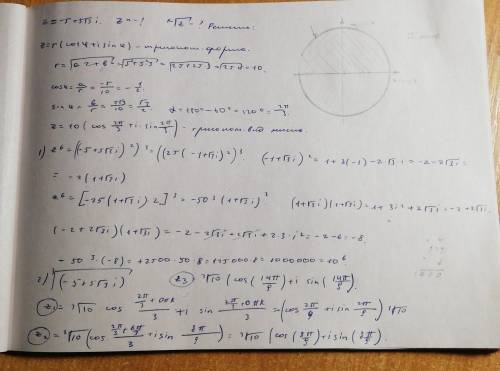 z = -5+5√3i. z^6 - ? ³√z - ?
Решение:
z = r(cosφ + i sinφ) - тригоном. форма.
r = √a²+b² = = 10.
cosφ = a/r = -5/10 = -1/2
sinφ = b/r = 5√3/10 = √3/2
z = 10(cos 2π/3 + i·sin 2π/3) - тригоном. вид числа.
1) z⁶ = ((-5+5√3i)²)³ = ((25(-1+√3i)²)³ (-1+√3i)² = 1+3(-1)-2√3i = -2-2√3i =
= -2(1+√3i)
z⁶ = [-25(1+√3i)·2]³ = -50³(1+√3i)³ (1+√3i)(1+√3i) = 1+3i²+2√3i = -2+2√3i.
(-2+2√3i)(1+√3i) = -2-2√3i+2√3i+2·3·i² = -2-6 = -8.
-50³·(-8) = +2500·50·8 = 125000·8 = 1000000 = 10⁶
2) ³√(-5+5√3i) z₃ = ³√10 (cos(14π/9) + i sin(14π/9).
z₁ = ³√10 cos (2π/3+0πk)/3 + i sin (2π/3+0πk)/3 = (cos 2π/9 + i sin 2π/9) ³√10
z₂ = ³√10 (cos + i sin 8π/9) = ³√10 (cos(8π/9) + i sin(8π/9).